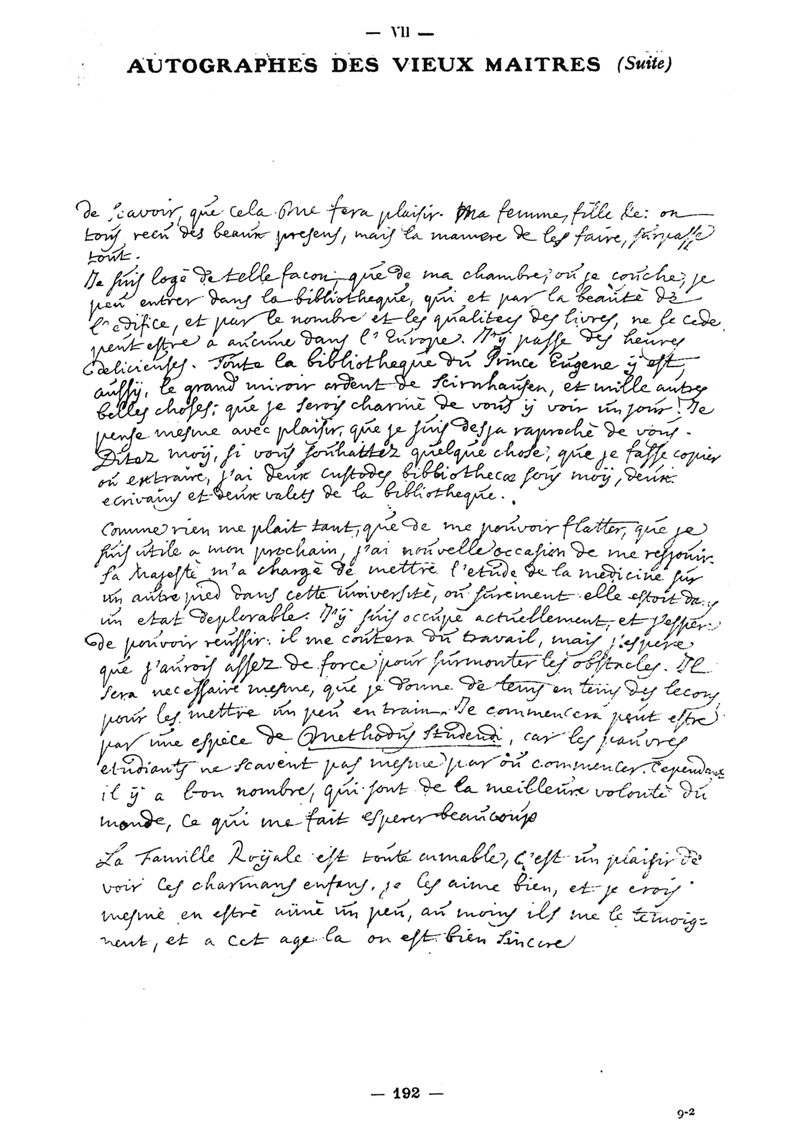 — VII —
AUTOGRAPHES DES VIEUX MAITRES (Suite)
de sçavoir, que cela me fera plaisir. Ma femme, fille &c: on
tous reçu des beaux presens, mais la maniere de les faire, surpasse
tout.
Je suis logé de telle facon, que de ma chambre, où je couche, je
peu entrer dans la bibliotheque, qui et par la beauté de
l'edifice, et par le nombre et les qualitees des livres, ne le cede
peut estre a aucune dans l'Europe. J'ÿ passe des heures
delicieuses. Toute la bibliotheque du Prince Eugene ÿ est,
aussÿ, le grand miroir ardent de Scirnhausen, et mille autres
belles choses; que je serois charmé de vous ÿ voir un jour! Je
pense mesme avec plaisir, que je suis desja raproché de vous.
Ditez moÿ, si vous souhaittez quelque chose, que je fasse copier
ou extraire, j'ai deux custodes bibliothecæ sous moÿ, deux
ecrivains et deux valets de la bibliotheque.
Comme rien me plait tant, que de me pouvoir flatter, que je
suis utile a mon prochain, j'ai nouvelle occasion de me resjouir.
Sa Majesté m'a chargé de mettre l'etude de la medicine sur
un autre pied dans cette université, ou surement elle estoit dans
un etat deplorable. J'ÿ suis occupé actuellement, et j'esper
de pouvoir reussir. il me coutera du travail, mais j'espere
que j'aurois assez de force pour surmonter les obstacles. Il
sera necessaire mesme, que je donne de tems en tems des lecons
pour les mettre un peu en train. Je commencera peut estre
par une espéce de Methodus Studendi, car les pauvres
etudiants ne scavent pas mesme par où commencer. Cependant
il ÿ a bon nombre, qui sont de la meilleure volonté du
monde, ce qui me fait esperer beaucoup
La Famille Roÿale est toute aimable, c'est un plaisir de
voir ces charmans enfans. je les aime bien, et je crois
mesme en estre aimé un peu, au moins ils me le temoig=
nent, et a cet age la on est bien sincere
— 192 —
9-2